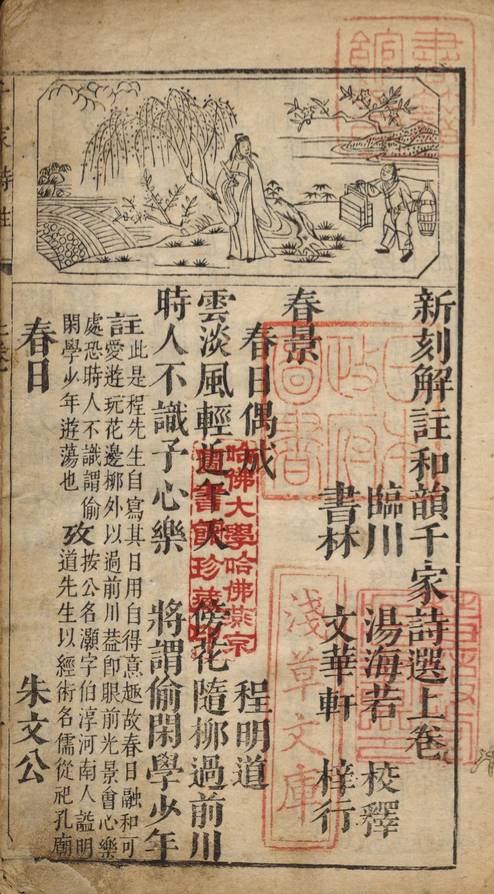 新刻解註和韻千家詩選上卷
臨川 湯海若 校釋
書林 文華軒 梓行
春景
春日偶成 程明道
雲淡風輕近午天 傍花隨柳過前川
時人不識子心樂 將謂偷閑學少年
註此是程先生自寫其日用自得意趣故春日融和可
愛遊玩花邊柳外以過前川益即眼前光景會心樂
處恐時人不識謂偷
閑學少年遊蕩也
攷按公名灝字伯淳河南人謚明
道先生以經術名儒從祀孔廟
春日 朱文公
日本政府圖書
淺草文庫
哈佛大學哈佛燕京圖書館珍藏印